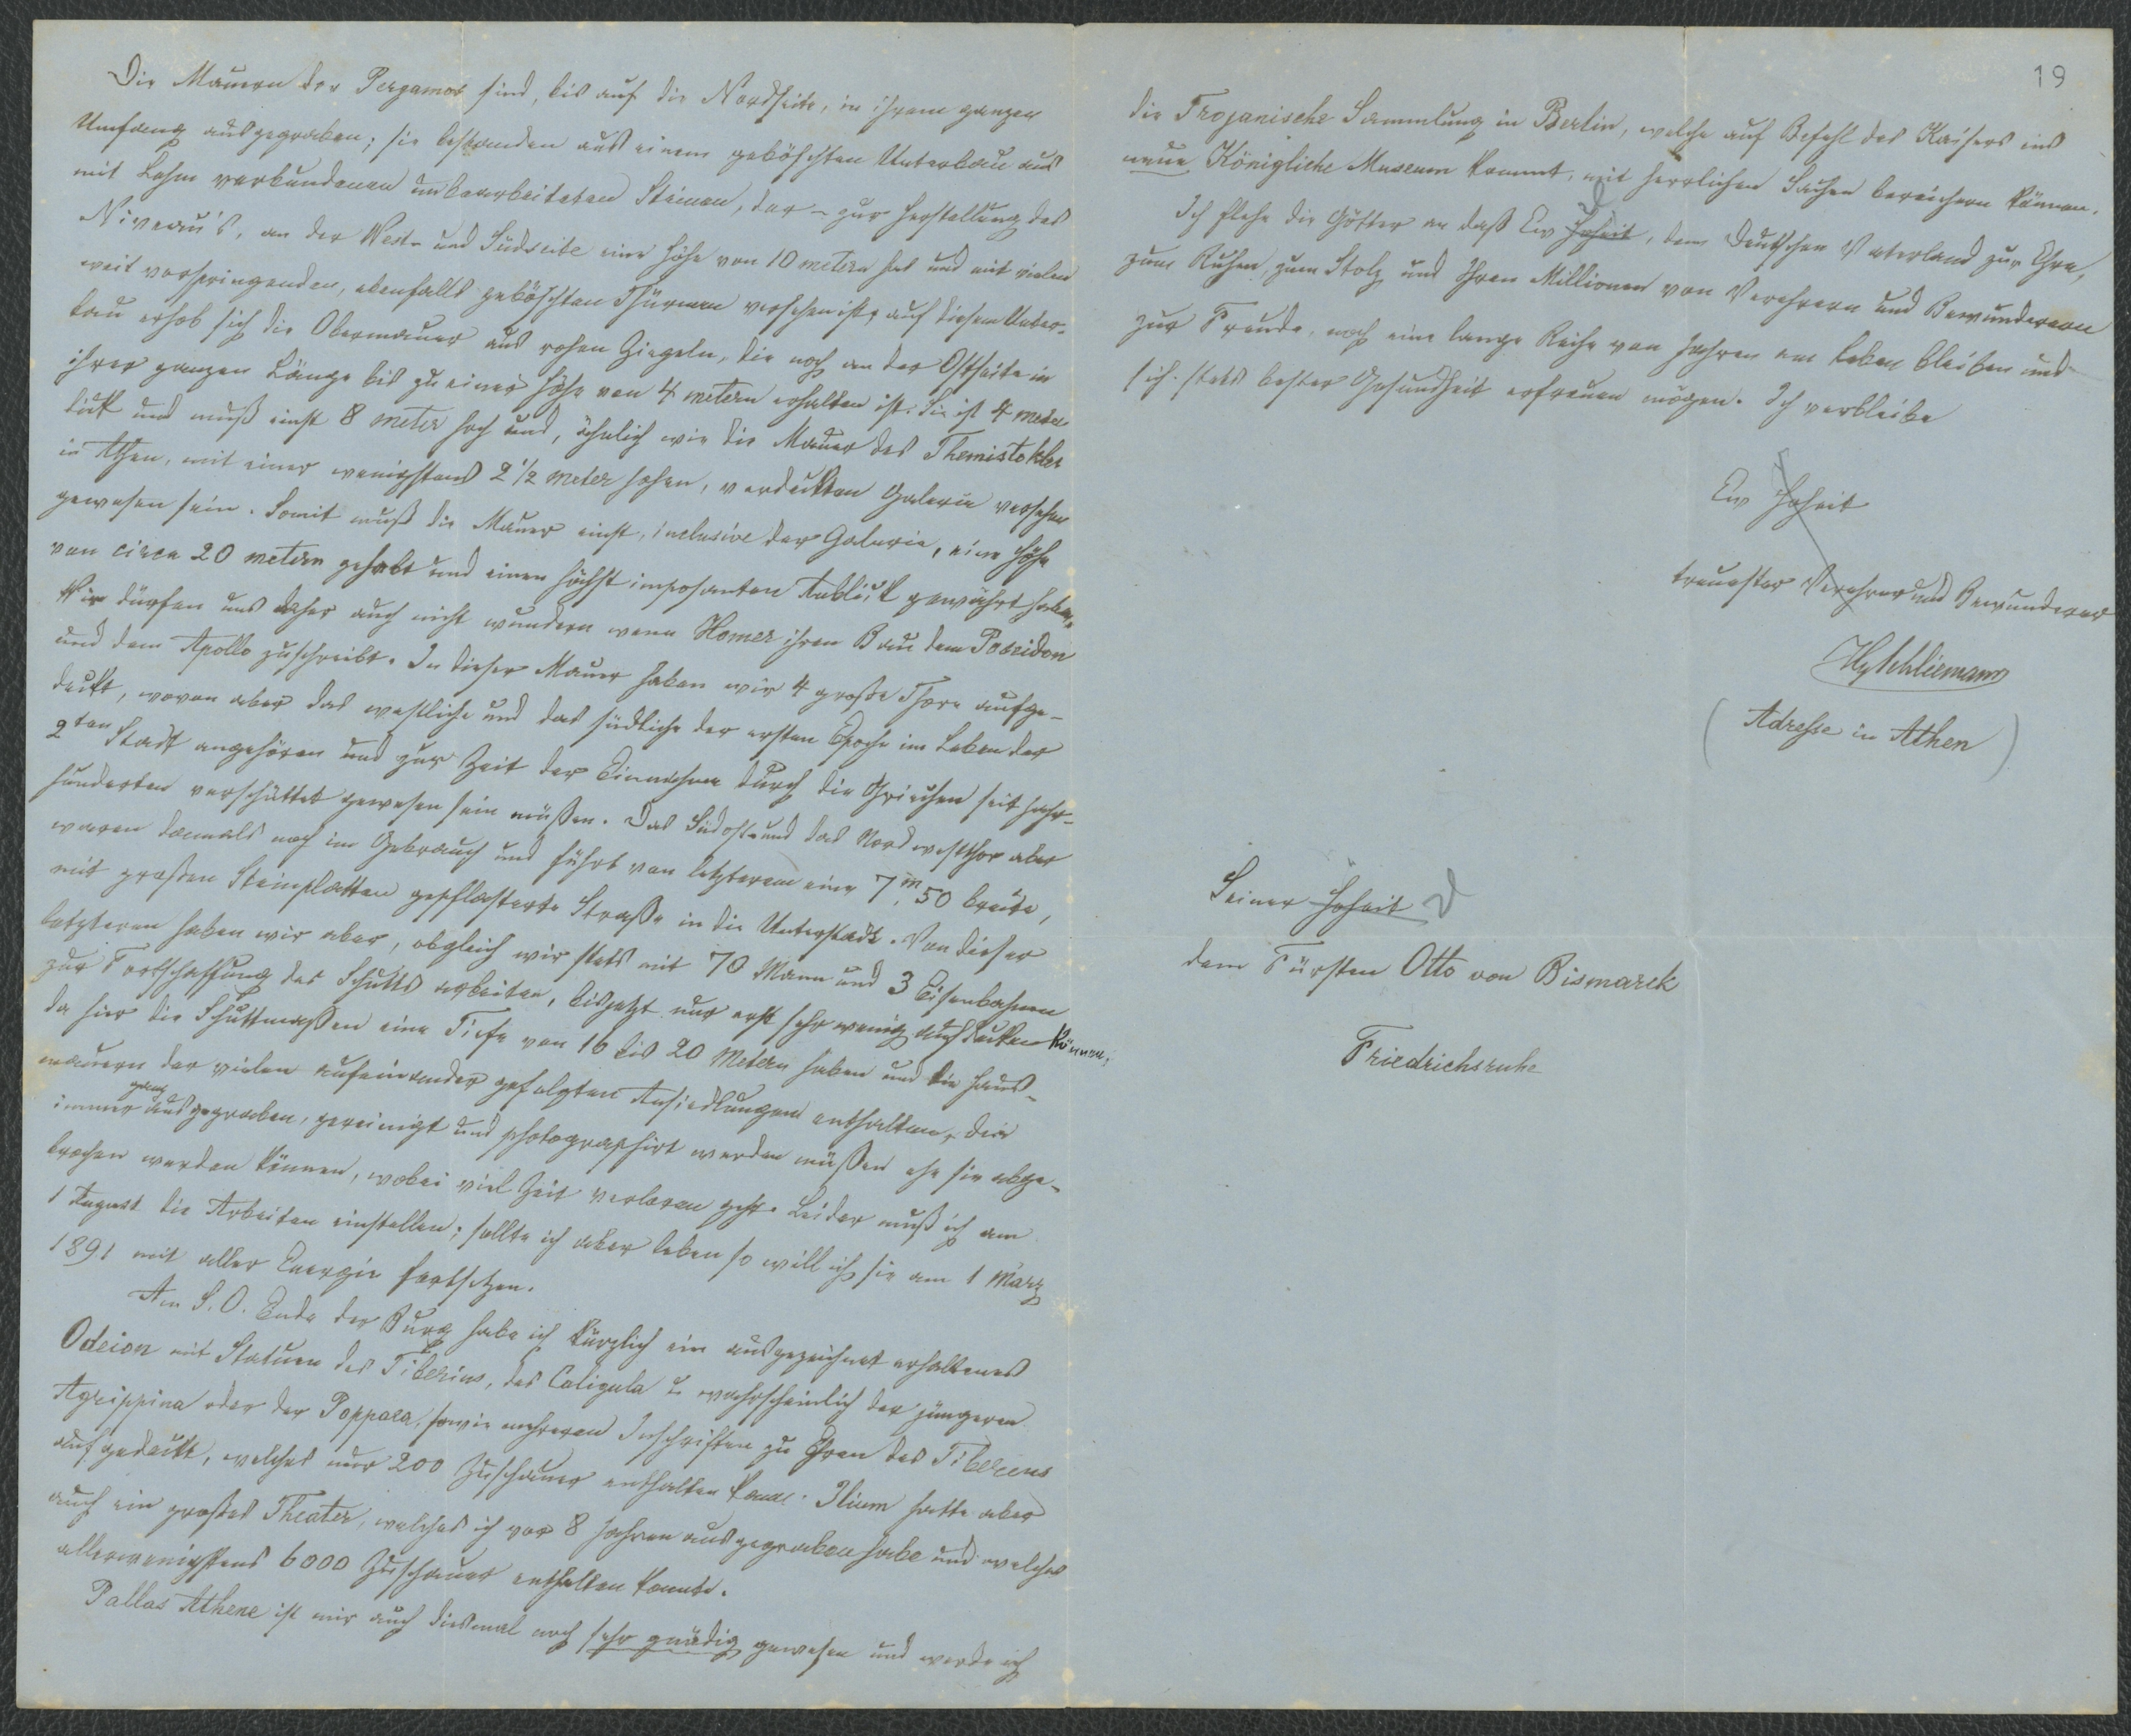 Die Mauern der Pergamos sind, bis auf die Nordseite, in ihrem ganzen
Umfang ausgegraben; sie bestanden aus einem geböschten Unterbau aus
mit Lehm verbundenen unbearbeiteten Steinen, der – zur Herstellung des
Niveau's, an der West- und Südseite eine Höhe von 10 metern hat und mit vielen
weit vorspringenden, ebenfalls geböschten Thürmen versehen ist; auf diesem Unter-
bau erhob sich die Obermauer aus rohen Ziegeln, die noch an der Ostseite in
ihrer ganzen Länge bis zu einer Höhe von 4 metern erhalten ist. Sie ist 4 meter
dick und muß einst 8 meter hoch und, ähnlich wie die Mauer des Themistokles
in Athen, mit einer wenigstens 2 1/2 meter hohen, verdeckten Galerie versehen
gewesen sein. Somit muß die Mauer einst, inclusive der Galerie, eine Höhe
von circa 20 metern gehabt und einen höchst imposanten Anblick gewährt haben.
Wir dürfen uns daher auch nicht wundern wenn Homer ihren Bau dem Poseidon
und dem Apollo zuschreibt. In dieser Mauer haben wir 4 große Thore aufge-
deckt, wovon aber das westliche und das südliche der ersten Epoche im Leben der
2ten Stadt angehören und zur Zeit der Einnahme durch die Griechen seit Jahr-
hunderten verschüttet gewesen sein müßen. Das Südost- und das Nordwestthor aber
waren damals noch im Gebrauch und führt von letzterem eine 7m,50 breite,
mit großen Steinplatten gepflasterte Straße in die Unterstadt. Von dieser
letzteren haben wir aber, obgleich wir stets mit 70 Mann und 3 Eisenbahnen
zur Fortschaffung des Schutts arbeiten, bis jetzt nur erst sehr wenig aufdecken können,
da hier die Schuttmaßen eine Tiefe von 16 bis 20 Metern haben und die Haus-
mauern der vielen aufeinander gefolgten Ansiedlungen enthalten, die
immer ganz ausgegraben, gereinigt und photographirt werden müßen ehe sie abge-
brochen werden können, wobei viel Zeit verloren geht. Leider muß ich am
1 August die Arbeiten einstellen; sollte ich aber leben so will ich sie am 1 März
1891 mit aller Energie fortsetzen.
Am S.O. Ende der Burg habe ich kürzlich ein ausgezeichnet erhaltenes
Odeion mit Statuen des Tiberius, des Caligula & wahrscheinlich der jüngeren
Agrippina oder der Poppaea, sowie mehreren Inschriften zu Ehren des Tiberius
aufgedeckt, welches nur 200 Zuschauer enthalten kann. Ilium hatte aber
auch ein großes Theater, welches ich vor 8 Jahren ausgegraben habe und welches
allerwenigstens 6000 Zuschauer enthalten konnte.
Pallas Athene ist mir auch diesmal noch sehr gnädig gewesen und werde ich
19
die Trojanische Sammlung in Berlin, welche auf Befehl des Kaisers ins
neue Königliche Museum kommt, mit herrlichen Sachen bereichern können.
Ich flehe die Götter an daß Ew Hoheit, dem Deutschen Vaterland zur Ehre,
zum Ruhm, zum Stolz und Ihren Millionen von Verehrern und Bewunderern
zur Freude, noch eine lange Reihe von Jahren am Leben bleiben und
sich stets bester Gesundheit erfreuen mögen. Ich verbleibe
Ew Hoheit
treuester Verehrer und Bewunderer
Hy Schliemann
(Adresse in Athen)
Seiner Hoheit
dem Fürsten Otto von Bismarck
Friedrichsruhe